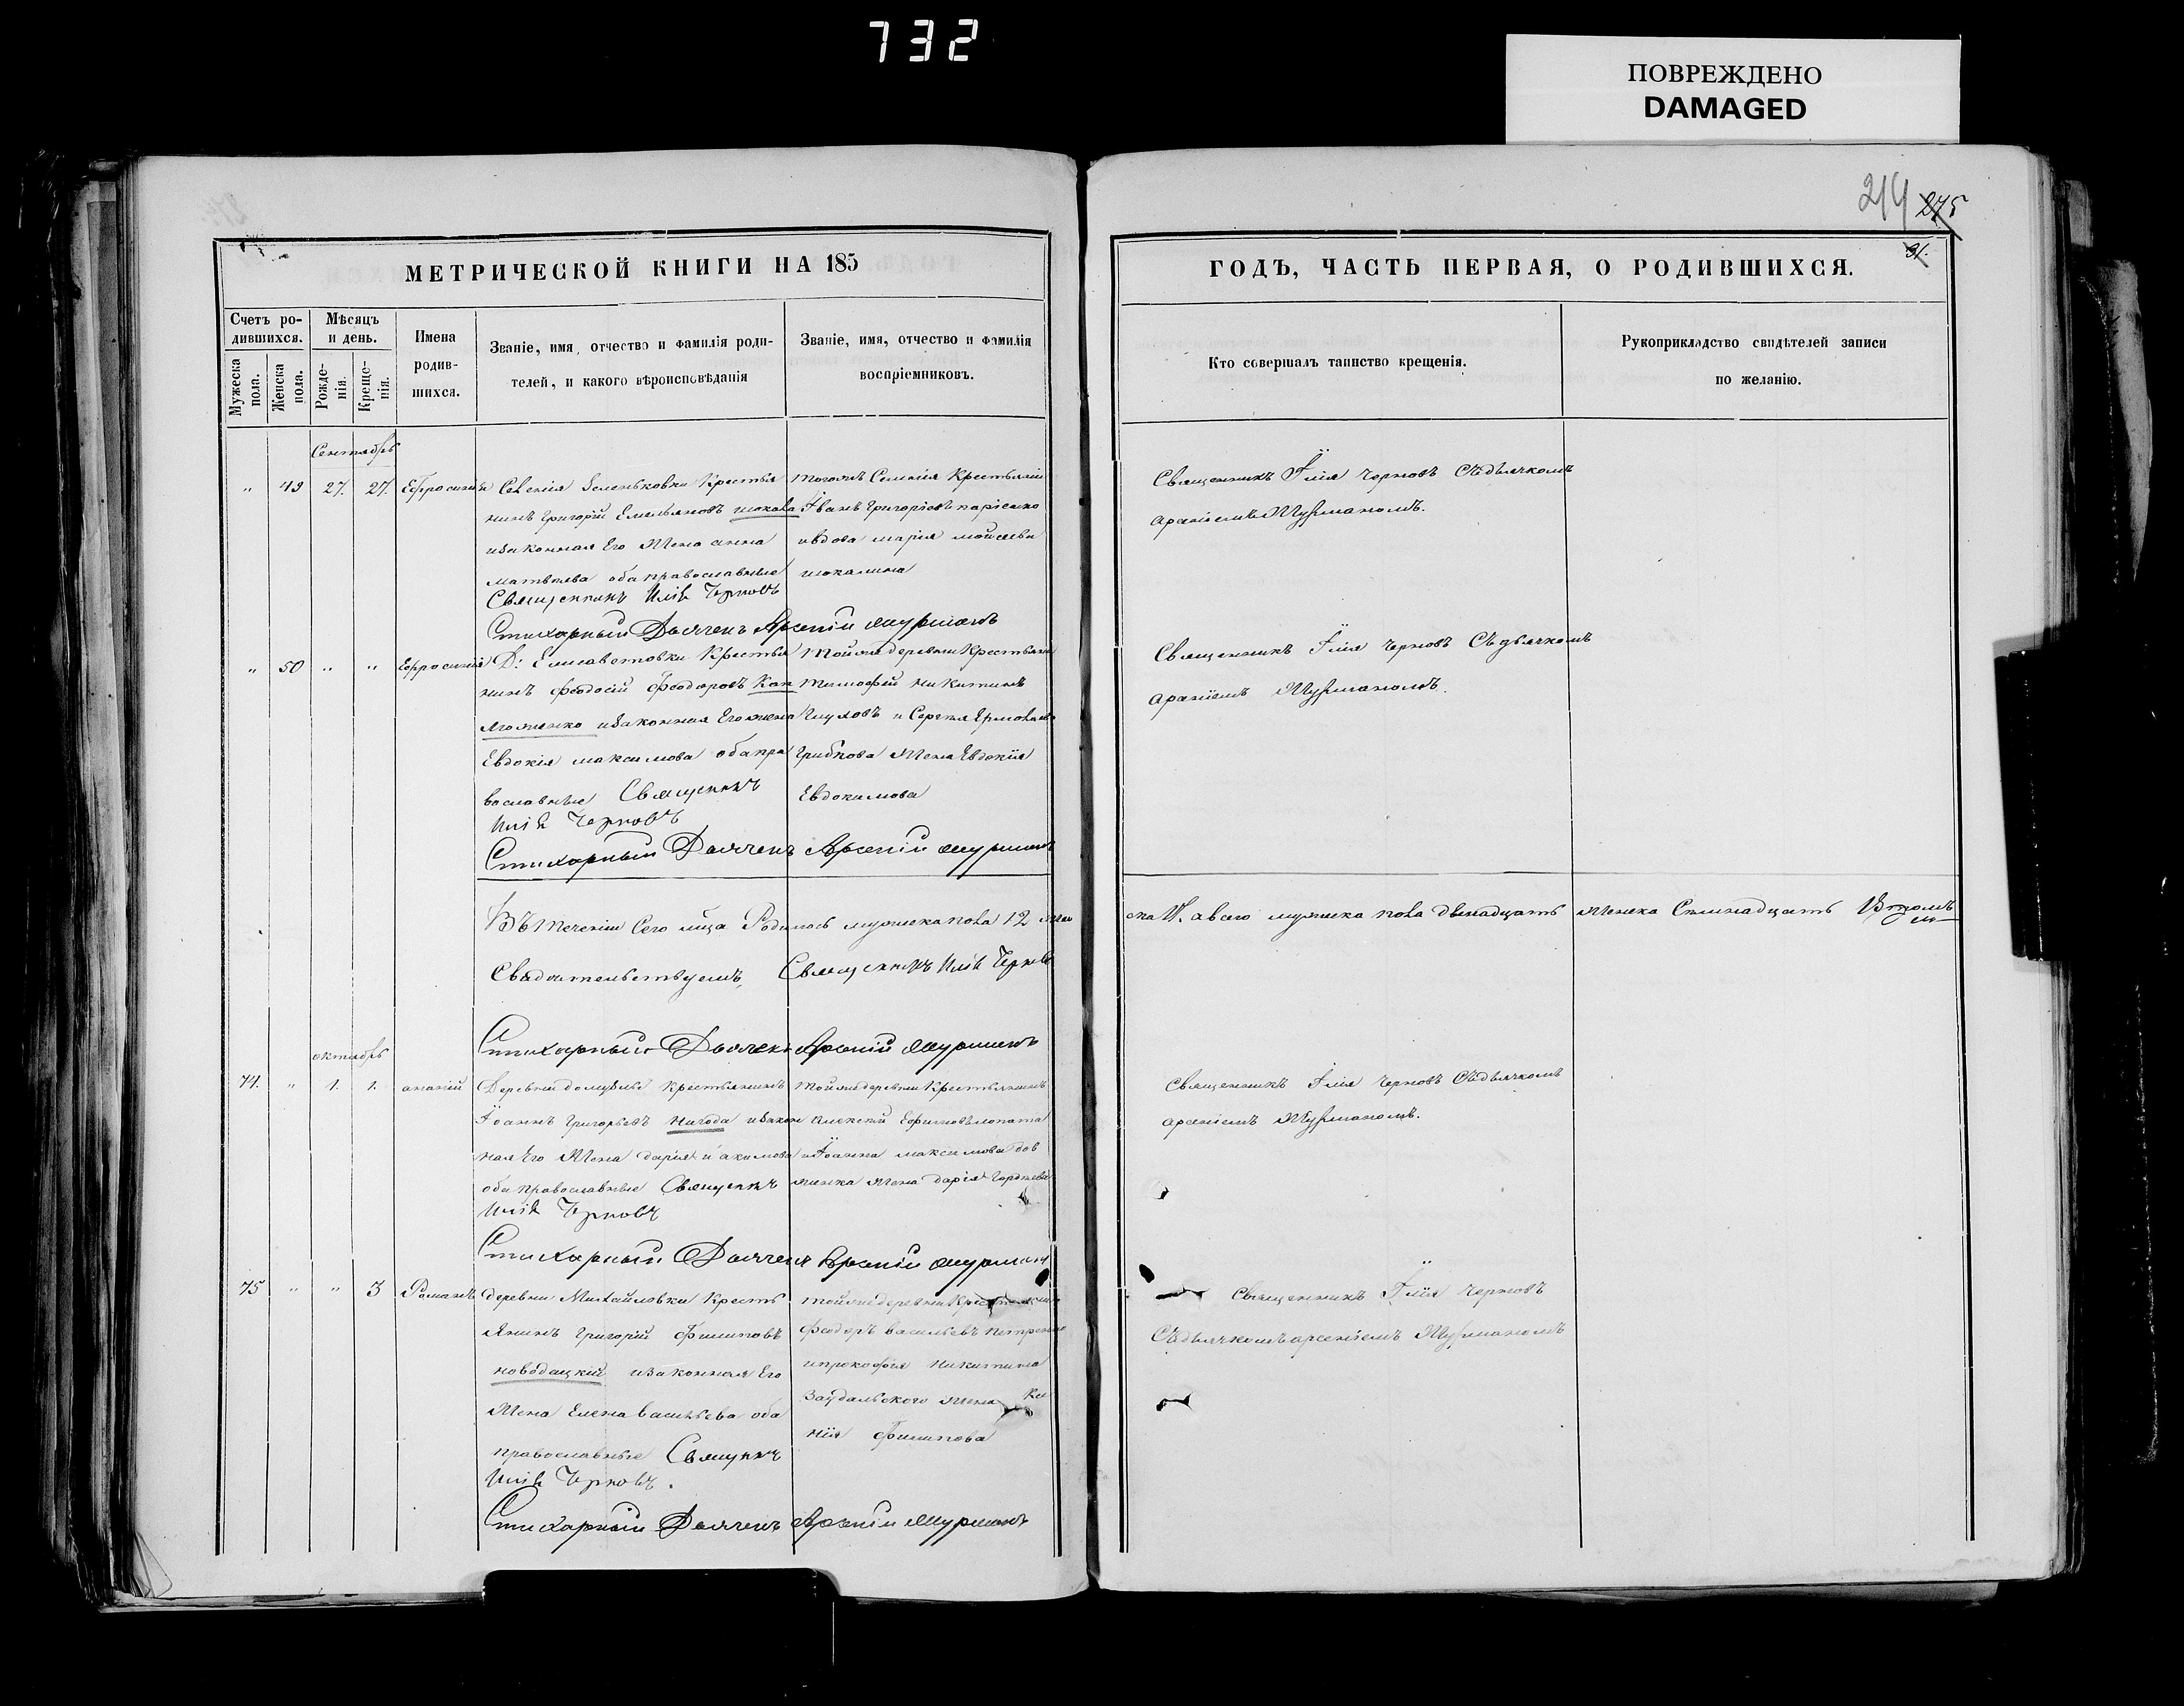 732
ПОВРЕЖДЕНО
DAMAGED
214 275
31.
МЕТРИЧЕСКОЙ КНИГИ НА 185
ГОДЪ, ЧАСТЬ ПЕРВАЯ, О РОДИВШИХСЯ.
Счетъ ро-
дившихся.
Мужеска пола.
Женска пола.
Мѣсяцъ
и день.
Рожде-
нія.
Креще-
нія.
Имена
родив-
шихся.
Званіе, имя, отчество и фамилія роди-
телей, и какого вѣроисповѣданія
Званіе, имя, отчество и фамилія
воспріемниковъ.
Кто совершалъ таинство крещенія.
Рукоприкладство свидѣтелей записи
по желанію.
Сентябрь
" 49 27. 27. Ефросинія
Селенія Зеленьковки Крестья
нинъ Григорій Емельяновъ
изаконная Его Жена анна
матвѣева обаправославные
Священникъ Илія Черновъ
Стихарный Дьячекъ Арсеній Мурманъ
тогожъ Селенія Крестьянинъ
Іванъ Григоріевъ
ивдова марія мойсеева
Священникъ Ілія Черновъ Съдьячкомъ
арсеніемъ Мурманомъ.
" 50 " " Ефросинія
Д: Елисаветовки Крестья
нинъ Феодосій Феодоровъ Кап
изаконная Егожена
Евдокія максимова обапра
вославные Священникъ
Илія Черновъ
Стихарный Дьячекъ Арсеній Мурманъ
Тойжедеревни Крестьянинъ
Тимофей Никитинъ
Глуховъ и Сергѣя
Грибкова Жена Евдокія
Евдокимова
Священникъ Ілія Черновъ Съдьячкомъ
арсеніемъ Мурманомъ.
Въ течении Сего мца Родилось мужеска пола 12 же
ска 17. авсего мужеска пола двенадцать женска Семнадцать Втомъ
Свѣдетельствуемъ, Священникъ Илія Черновъ
Стихарный Дьячекъ Арсеній Мурманъ
октябрь
74. " 1. 1. ананій
Деревни крестьянинъ
Іоаннъ Григорьевъ Нигода изакон
ная Его Жена дарія акимова
оба православные Священникъ
Илія Черновъ
Стихарный Дьячекъ Арсеній Мурманъ
тойжедеревни Крестьянинъ
Алексѣй Ефимовъ лопата
иІоанна максимова дов
женка жена дарія
Священникъ Ілія Черновъ Съдьячкомъ
арсеніемъ Мурманомъ.
75 " " 3 Романъ
деревни Михайловки Кресть
янинъ Григорій Филиповъ
новодацкій изаконная Его
Жена Елена васильева оба
православные Священникъ
Илія Черновъ.
Стихарный Дьячекъ Арсеній Мурманъ
тойжедеревни Крестьянинъ
Феодоръ васильевъ петренко
ипрокофія Никитина
жена Ксе
нія Филипова
Священникъ Ілія Черновъ
Съдьячкомъарсеніемъ Мурманомъ